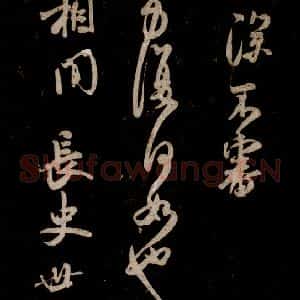 深不審
力復何如也
相問長史世
Shufawang.CN